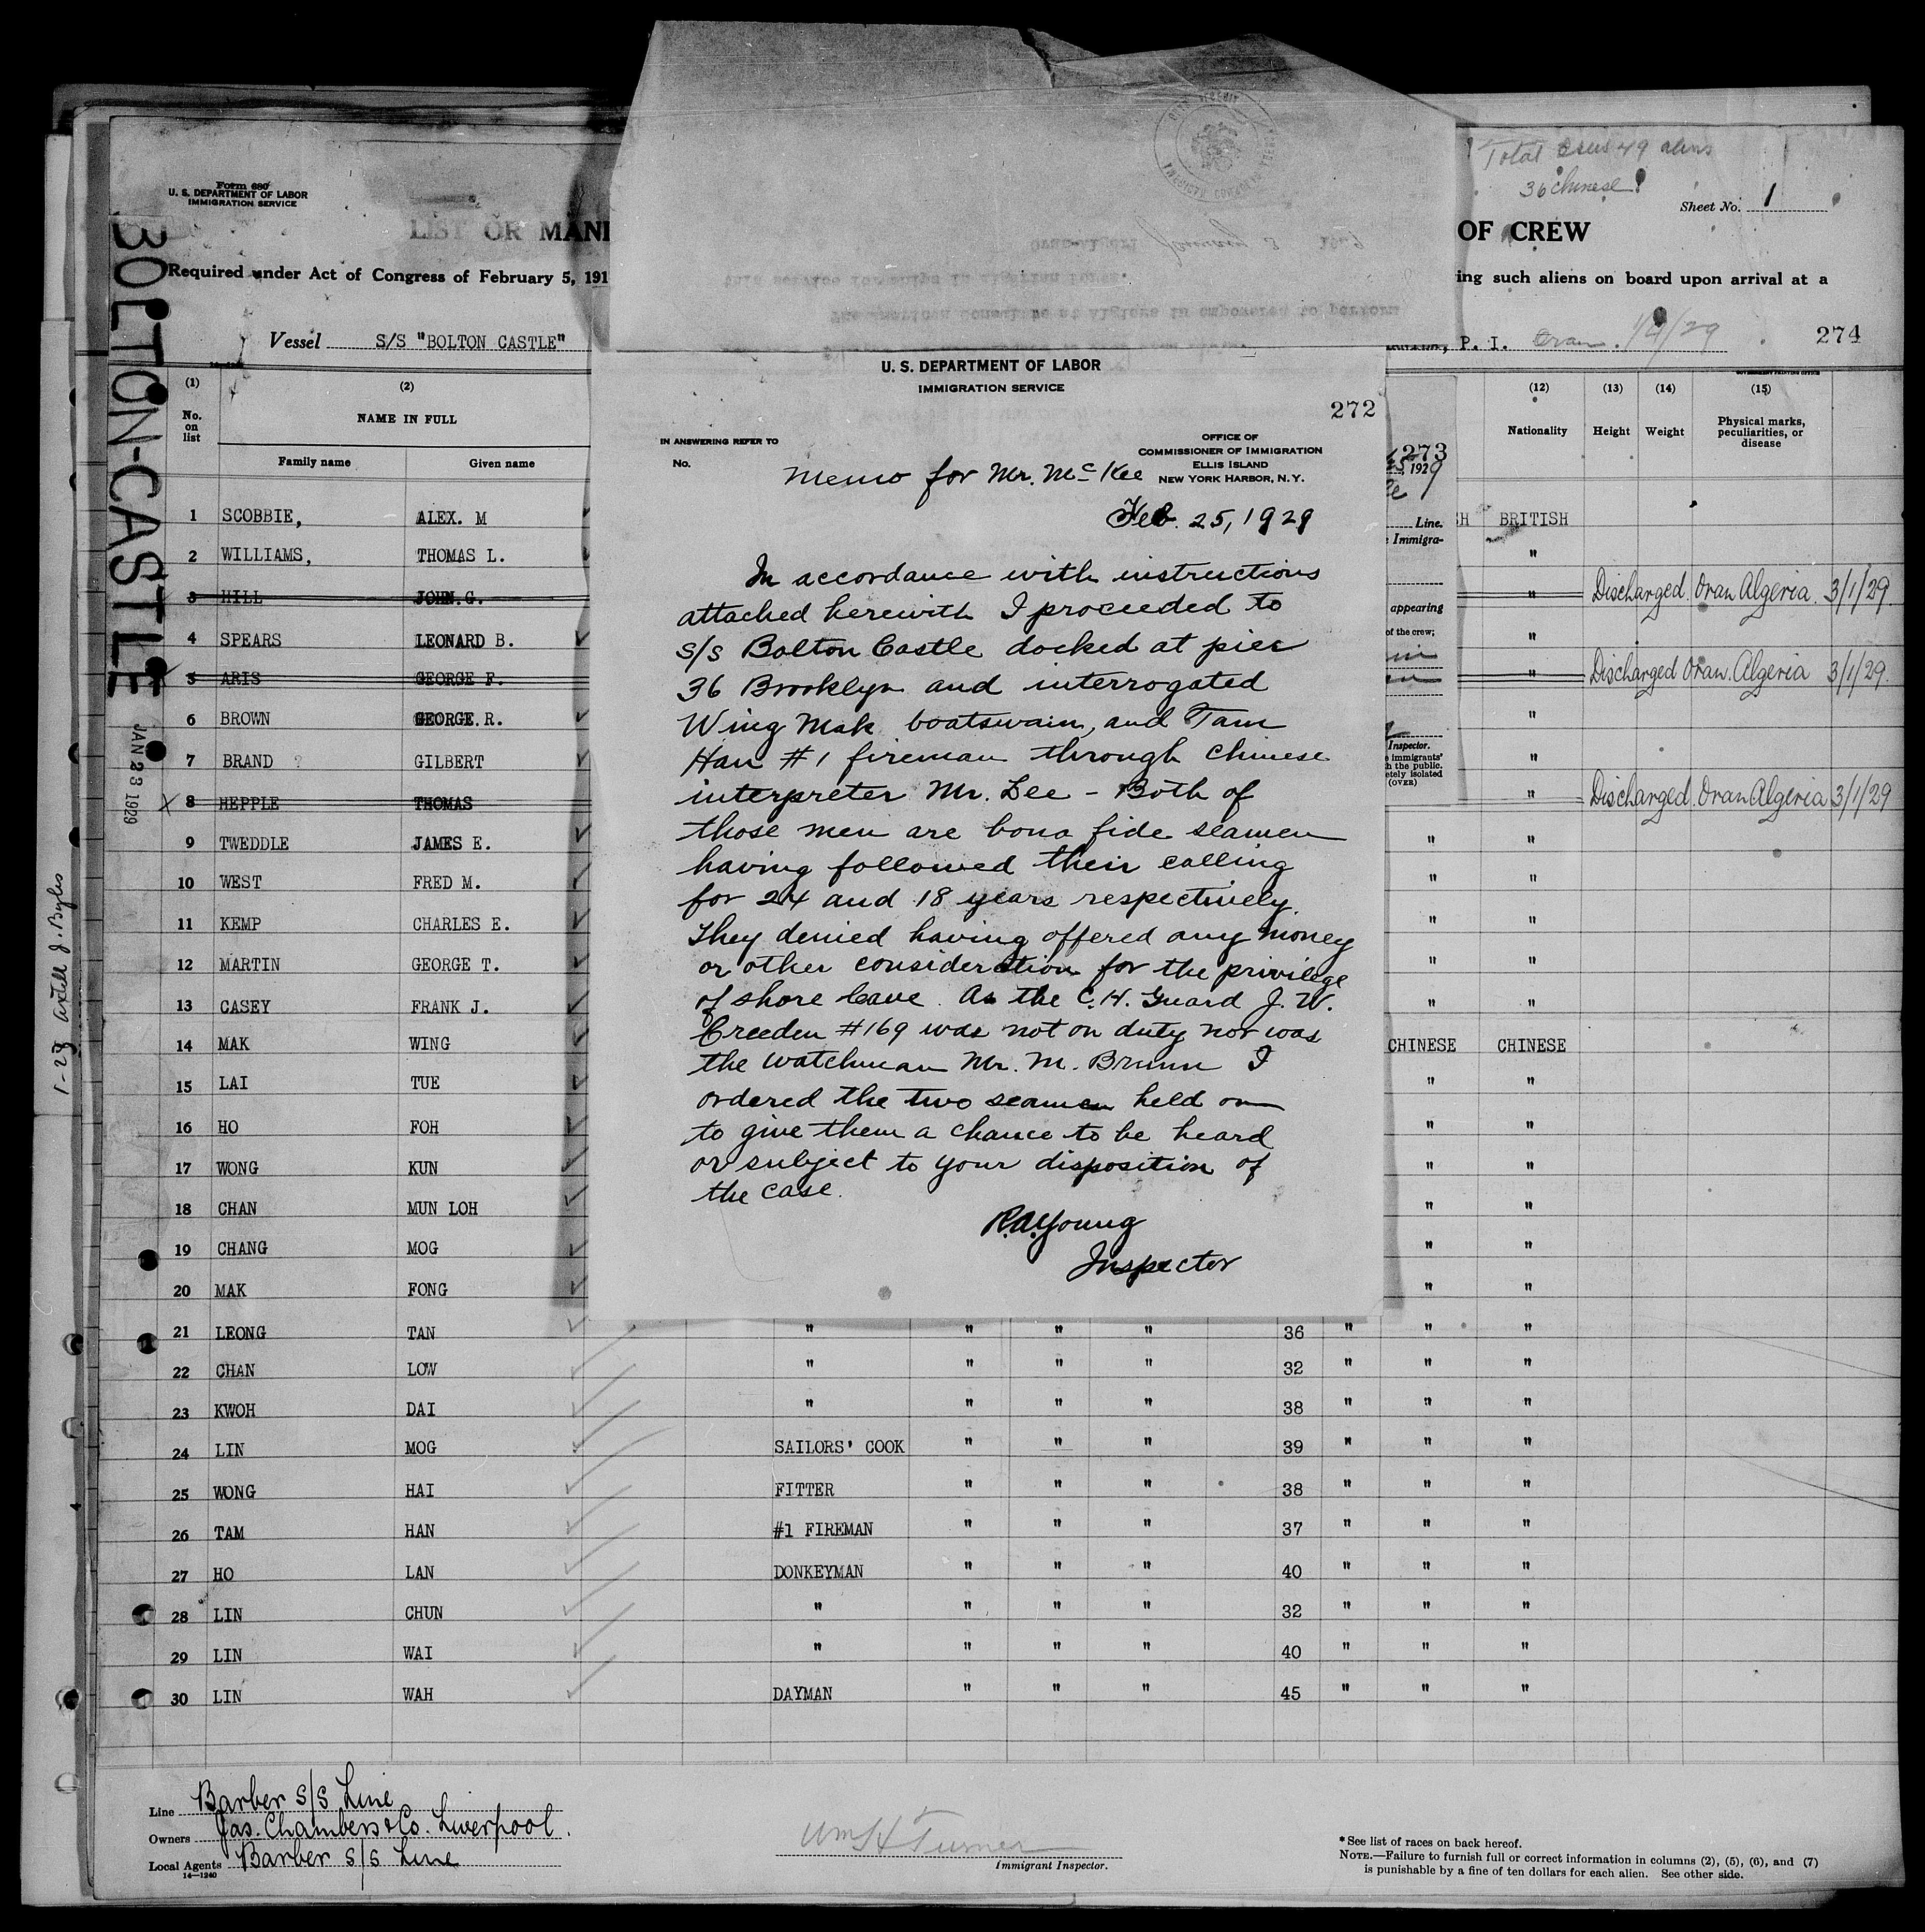 Form 680
U. S. DEPARTMENT OF LABOR
IMMIGRATION SERVICE
LIST OR MANI
Required under Act of Congress of February 5, 191
Vessel S/S "BOLTON CASTLE"
BOLTON-CASTLE
JAN 23 1929
Total crew 49 aliens
36 chinese
Sheet No. 1
OF CREW
ing such aliens on board upon arrival at a
, P. I. Oran. 1/9/29
274
U. S. DEPARTMENT OF LABOR
IMMIGRATION SERVICE
272
IN ANSWERING REFER TO
No.
OFFICE OF
COMMISSIONER OF IMMIGRATION
ELLIS ISLAND
NEW YORK HARBOR, N. Y.
Memo for Mr. McKee
Feb. 25, 1929
In accordance with instructions
attached herewith I proceeded to
s/s Bolton Castle docked at pier
36 Brooklyn and interrogated
Wing Mak boatswain, and Tam
Han #1 fireman through Chinese
interpreter Mr. Lee - Both of
those men are bona fide seamen
having followed their calling
for 24 and 18 years respectively.
They denied having offered any money
or other consideration for the privilege
of shore leave. As the C.H. Guard J. W.
Creeden #169 was not on duty nor was
the watchman Mr. M. Brunn I
ordered the two seamen held on
to give them a chance to be heard
or subject to your disposition of
the case.
R.A. Young
Inspector
273
, 1929
Line.
e Immigra-
appearing
of the crew;
Inspector.
e immigrants'
h the public.
etely isolated
(OVER)
(1) (2) (12) (13) (14) (15)
No. on list NAME IN FULL Nationality Height Weight Physical marks, peculiarities, or disease
Family name Given name
1 SCOBBIE, ALEX. M SH BRITISH
2 WILLIAMS, THOMAS L. "
3 HILL JOHN.G. " Discharged. Oran Algeria. 3/1/29
4 SPEARS LEONARD B. "
5 ARIS GEORGE F. " Discharged Oran. Algeria 3/1/29.
6 BROWN GEORGE.R. "
7 BRAND ? GILBERT "
8 HEPPLE THOMAS " Discharged. Oran Algeria 3/1/29
9 TWEDDLE JAMES E. " "
10 WEST FRED M. " "
11 KEMP CHARLES E. " "
12 MARTIN GEORGE T. " "
13 CASEY FRANK J. " "
14 MAK WING CHINESE CHINESE
15 LAI TUE " "
16 HO FOH " "
17 WONG KUN " "
18 CHAN MUN LOH " "
19 CHANG MOG " "
20 MAK FONG " "
21 LEONG TAN " " " " 36 " " "
22 CHAN LOW " " " " 32 " " "
23 KWOH DAI " " " " 38 " " "
24 LIN MOG SAILORS' COOK " " " 39 " " "
25 WONG HAI FITTER " " " 38 " " "
26 TAM HAN #1 FIREMAN " " " 37 " " "
27 HO LAN DONKEYMAN " " " 40 " " "
28 LIN CHUN " " " " 32 " " "
29 LIN WAI " " " " 40 " " "
30 LIN WAH DAYMAN " " " 45 " " "
Line Barber S/S Line
Owners Jas. Chambers & Co. Liverpool.
Local Agents Barber S/S Line
14-1240
Wm H Turner
Immigrant Inspector.
* See list of races on back hereof.
NOTE.—Failure to furnish full or correct information in columns (2), (5), (6), and (7)
is punishable by a fine of ten dollars for each alien. See other side.